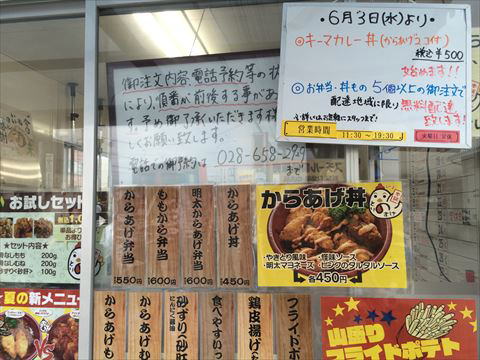 ・6月3日(水)より・
◎キーマカレー丼(からあげ2コ付)
税込¥500
始めます!!
◎お弁当・丼もの5個以上の御注文で
配達地域に限り無料配達
致します!
営業時間 11:30～19:30
火曜日定休
御注文内容、電話予約等の状
により、順番が前後する事があ
す。予め御了承いただきます様
しくお願い致します。
電話での御予約は
まで
お試しセット
<セット内容>
骨なしもも 200g
骨なしむね 200g
100g
夏の新メニュー
VS
からあげ弁当
550円
ももから弁当
600円
明太からあげ弁当
600円
からあげ丼
450円
からあげ丼
・やきとり風味
・怪味ソース
・明太マヨネーズ
・ピンクのタルタルソース
各450円
からあげも
からあげむ
砂ずり(砂肝
にんにく醤油
食べやすいっ
鶏皮揚げ
フライドポ
山盛り
フライドポテト